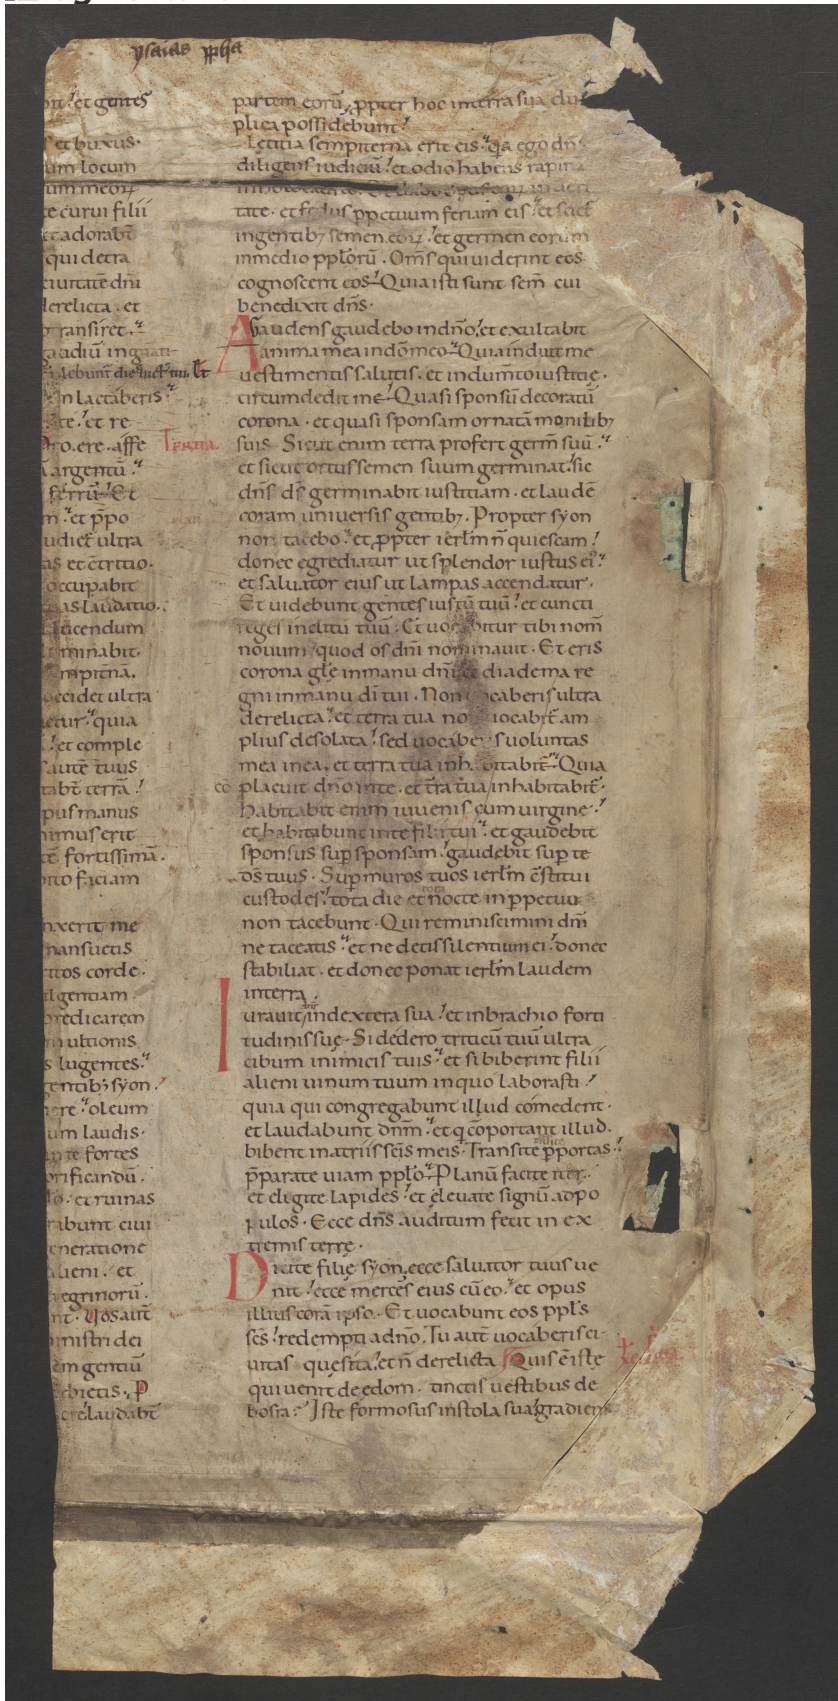 ysaias ꝓph̄a
⁊ gentes
et buxus·
um locum
um meoꝝ
te curui filii
et adorab̄t
qui detra
ciuitatē dn̄i
derelicta · et
transiret·
gaudiū in gn̄ati
In lactaberis
te et re
ꝓ ere · affe
argentū
ferrū Et
et p̄po
udiet᷑ ultra
as et c̄tritio·
occupabit
as laudatio·
lucendum
minabit·
mpit̄na·
occidet ultra
et᷑ quia
et comple
autē tuus
tab̄t terrā
pus manus
nimus erit
fortissimā·
ito faciam
nxerit me
mansuetis
ritos corde·
lgentiam
predicarem
ultionis
s lugentes·
gentibꝫ syon·
ere oleum
um laudis·
fortes
orificandū·
et ruinas
rabunt ciui
eneratione
alieni · et
egrinorū·
nt · Uos aut̄
ministri dei
gentiū
laudab̄t
partem eorū ꝓpter hoc in terra sua du
plicia possidebunt
Lętitia sempiterna erit eis· q̄a ego dn̄s
diligens iudiciū et odio habens rapinā
in holocausto
tate· et fędus ꝑpetuum feriam eis et sciet᷑
in gentibꝫ semen eoꝝ et germen eorum
in medio ppl̄orū · Om̄s qui uiderint eos
cognoscent eos Quia isti sunt sem̄ cui
benedixit dn̄s·
Gaudens gaudebo in dn̄o et exultabit
anima mea in dō meo Quia induit me
uestimentis salutis· et indum̄to iustitię·
circumdedit me Quasi sponsū decoratū
corona · et quasi sponsam ornatā monilibꝫ
Tertia
suis Sicut enim terra profert germ̄ suū
et sicut ortus semen suum germinat sic
dn̄s dꝭ germinabit iustitiam · et laudē
coram uniuersis gentibꝫ. Propter syon
non tacebo et ꝓpter ierl̄m n̄ quiescam
donec egrediatur ut splendor iustus ei᷒
et saluator eius ut lampas accendatur·
Et uidebunt gentes iustū tuū et cuncti
reges inclitū tuū · Et uocabitur tibi nom̄
nouum quod os dn̄i nominauit · Et eris
corona gl̄ę in manu dn̄i et diadema re
gni in manu dī tui · Non uocaberis ultra
derelicta et terra tua non uocabit᷑ am
plius desolata sed uocaberis uoluntas
mea in ea· et terra tua inhabitabit᷑ Quia
cō placuit dn̄o in te · et t̄ra tua inhabitabit᷑
habitabit enim iuuenis cum uirgine
et habitabunt in te filii tui et gaudebit
sponsus sup̄ sponsam gaudebit sup̄ te
ds̄ tuus · Sup̄ muros tuos ierl̄m c̄stitui
custodes tota die et tota nocte in ꝑpetuū
non tacebunt · Qui reminiscimini dn̄i
ne taceatis et ne detis silentium ei donec
stabiliat · et donec ponat ierl̄m laudem
in terra·
Iurauit dn̄s in dextera sua et in brachio forti
tudinis suę· Si dedero triticū tuū ultra
cibum inimicis tuis et si biberint filii
alieni uinum tuum in quo laborasti
quia qui congregabunt illud comedent·
et laudabunt dnm̄ et q̄ cōportant illud·
bibent in atriis sc̄is meis· Transite ꝑ portas
p̄parate uiam ppl̄o Planū facite iter·
et eligite lapides et eleuate signū ad po
pulos· Ecce dn̄s auditum fecit in ex
tremis terrę·
Dicite filię syon ecce saluator tuus ue
nit ecce merces eius cū eo et opus
illius corā ipso · Et uocabunt eos ppl̄s
sc̄s redempti a dn̄o· Tu aut̄ uocaberis ci
uitas quęsita et n̄ derelicta Quis ē iste
qui uenit de edom · tinctis uestibus de
bosra Iste formosus in stola sua gradiens